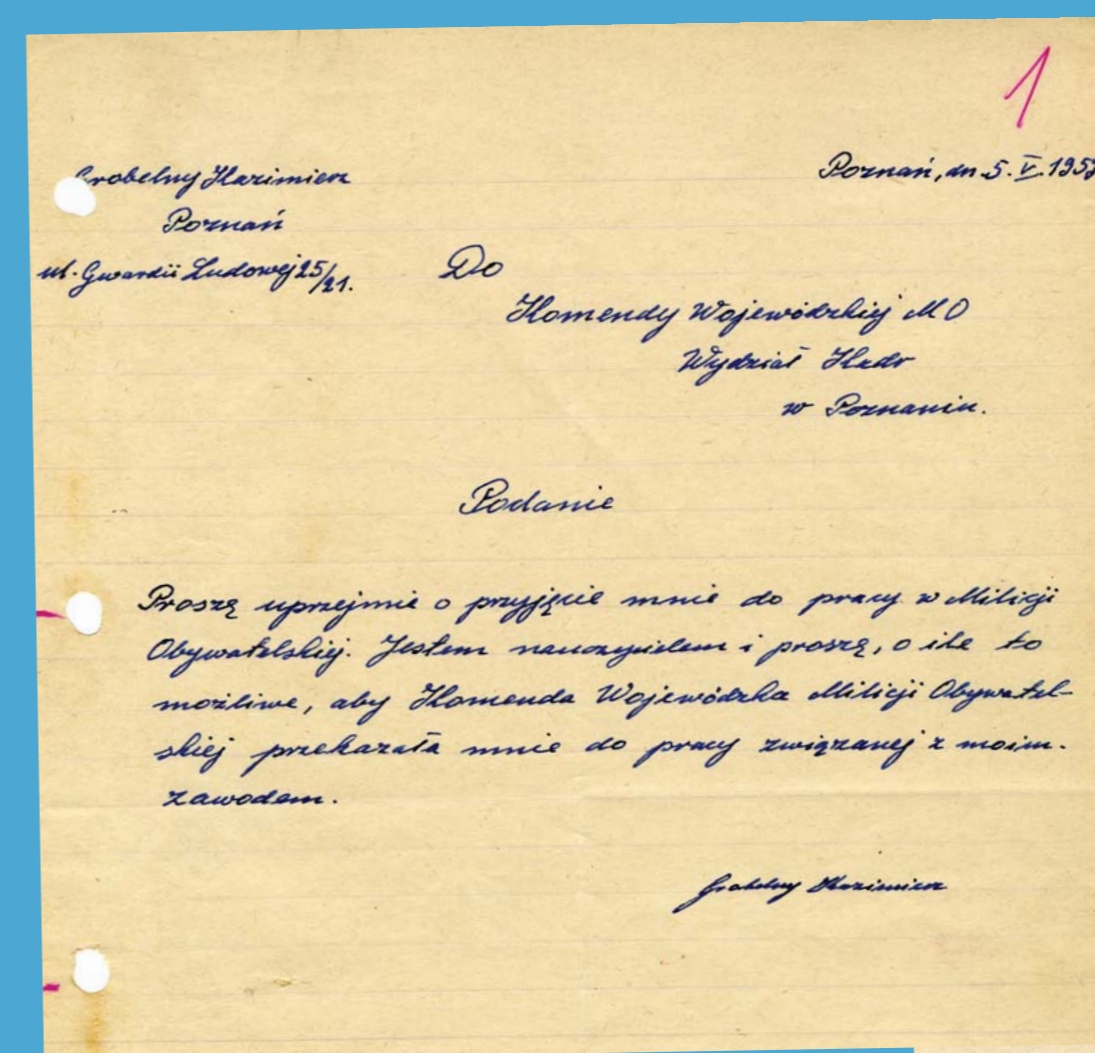 1
Poznań, dn. 5. V. 195
Grobelny Kazimierz
Poznań
ul. Gwardii Ludowej 25/21.
Do
Komendy Wojewódzkiej MO
Wydział Kadr
w Poznaniu.
Podanie
Proszę uprzejmie o przyjęcie mnie do pracy w Milicji
Obywatelskiej. Jestem nauczycielem i proszę, o ile to
możliwe, aby Komenda Wojewódzka Milicji Obywatel-
skiej przekazała mnie do pracy związanej z moim.
zawodem.
Grobelny Kazimierz